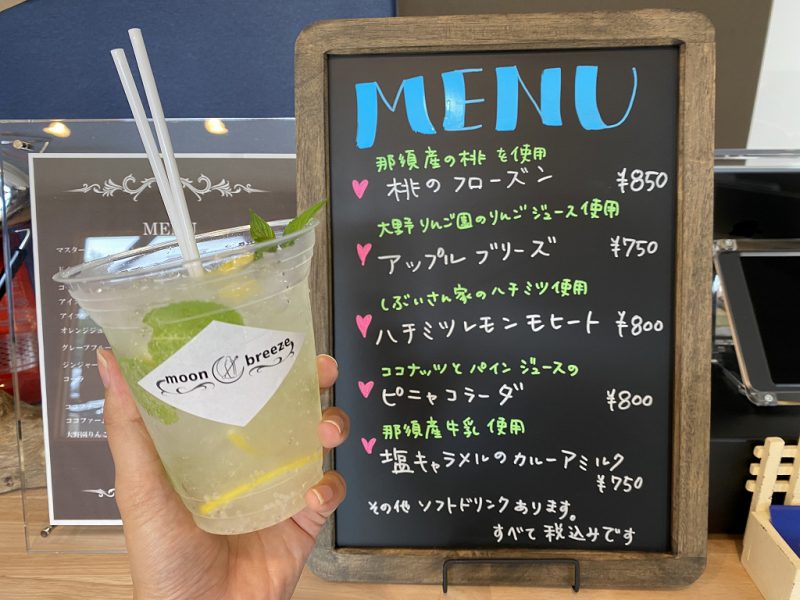 MENU
那須産の桃を使用
桃のフローズン ¥850
大野りんご園のりんごジュース使用
アップルブリーズ ¥750
しぶいさん家のハチミツ使用
ハチミツレモンモヒート ¥800
ココナッツとパインジュースの
ピニャコラーダ ¥800
那須産牛乳使用
塩キャラメルのカルーアミルク
¥750
その他 ソフトドリンクあります。
すべて税込みです
moon breeze
MENU
マスター
オレンジジュ
グレープフルー
ジンジャー
コーラ
ココファーム
大野園りんご